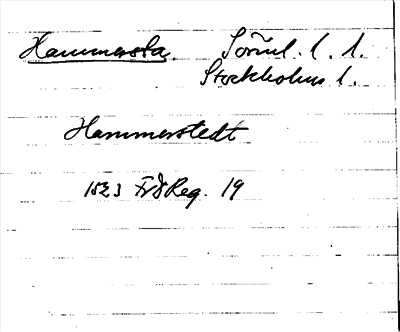 Hammersta. Sörml. l. 1.
Stockholms l.
Hammerstedt
1523 Reg. 19